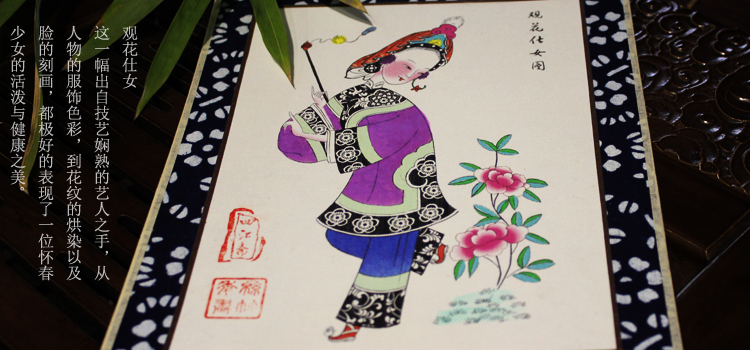 观花仕女
这一幅出自技艺娴熟的艺人之手，从
人物的服饰色彩，到花纹的烘染以及
脸的刻画，都极好的表现了一位怀春
少女的活泼与健康之美。
观花仕女图
绵竹
年画